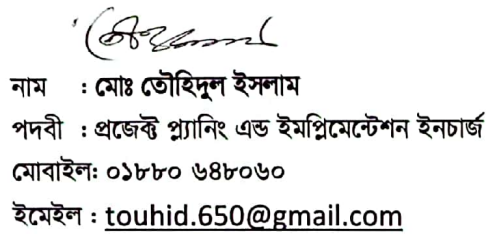 নাম : মোঃ তৌহিদুল ইসলাম
পদবী : প্রজেক্ট প্ল্যানিং এন্ড ইমপ্লিমেন্টেশন ইনচার্জ
মোবাইল: ০১৮৮০ ৬৪৮০৬০
ইমেইল : touhid.650@gmail.com